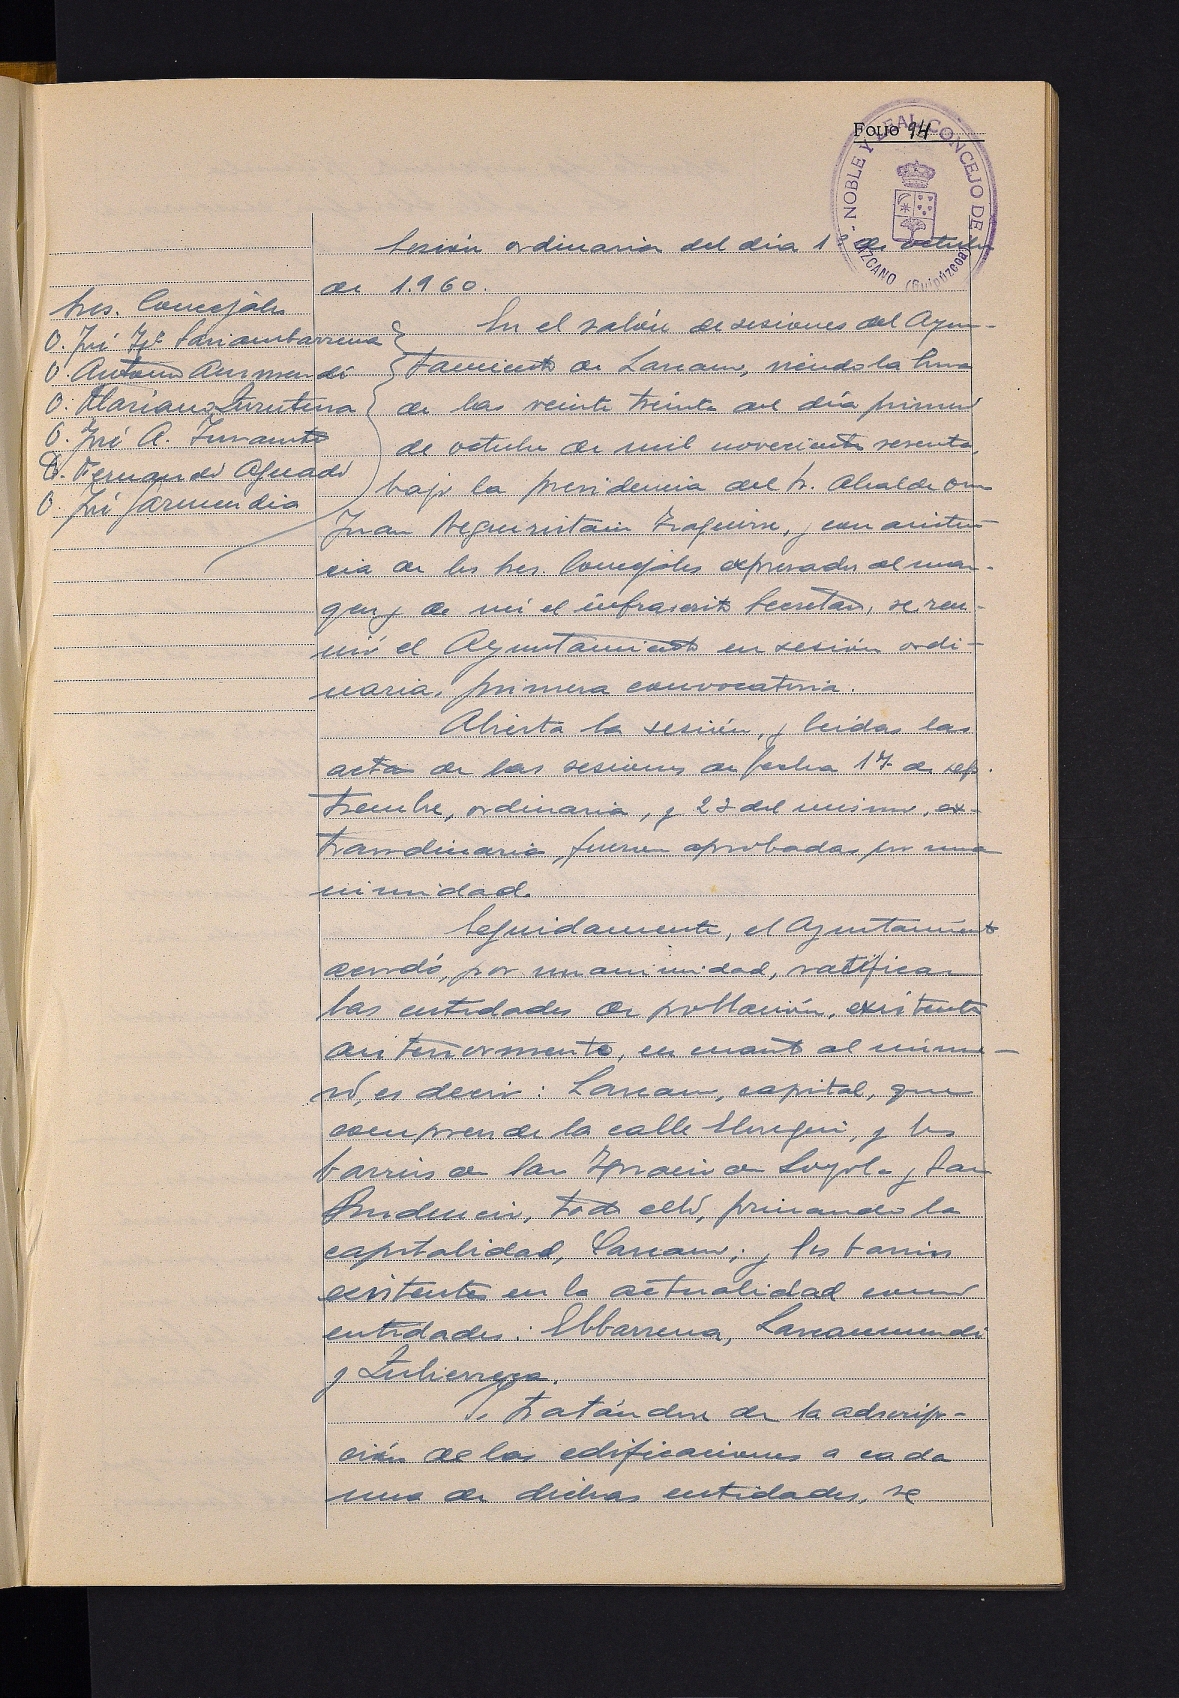 FOLIO 94
NOBLE Y LEAL CONCEJO DE LAZCANO (Guipúzcoa)
Sesión ordinaria del dia 1 de octubre
de 1.960.
Sres. Concejales
D. José Igº Sariambarrena
D. Antonio Aurmendi
D. Mariano Iruretena
D. José A. Insausti
D. Fernando Aguado
D. José Garmendia
En el salón de sesiones del Ayun-
tamiento de Lazcano, siendo la hora
de las veinte treinta del día primero
de octubre de mil novecientos sesenta,
bajo la presidencia del Sr. Alcalde Don
Juan Aeguiristain Iraguirre, y con asisten-
cia de los Sres. Concejales expresados al mar-
gen y de mi el infrascrito Secretario, se reu-
nió el Ayuntamiento en sesión ordi-
naria, primera convocatoria.
Abierta la sesión, y leidas las
actas de las sesiones de fecha 17 de sep-
tiembre, ordinaria, y 23 del mismo, ex-
traordinaria, fueron aprobadas por una
nimidad.
Seguidamente, el Ayuntamiento
acordó, por unanimidad, ratificar
las entidades de población, existentes
anteriormente, en cuanto al núme-
ro, es decir: Lazcano, capital, que
comprende la calle Elosegui, y los
barrios de San Ignacio de Loyola y San
Prudencio, todo ello, formando la
capitalidad, Lazcano; y los barrios
existentes en la actualidad como
entidades: Elbarrena, Lazcanomendi
y Zubierreca.
Y tratándose de la adscrip-
ción de las edificaciones a cada
una de dichas entidades, se